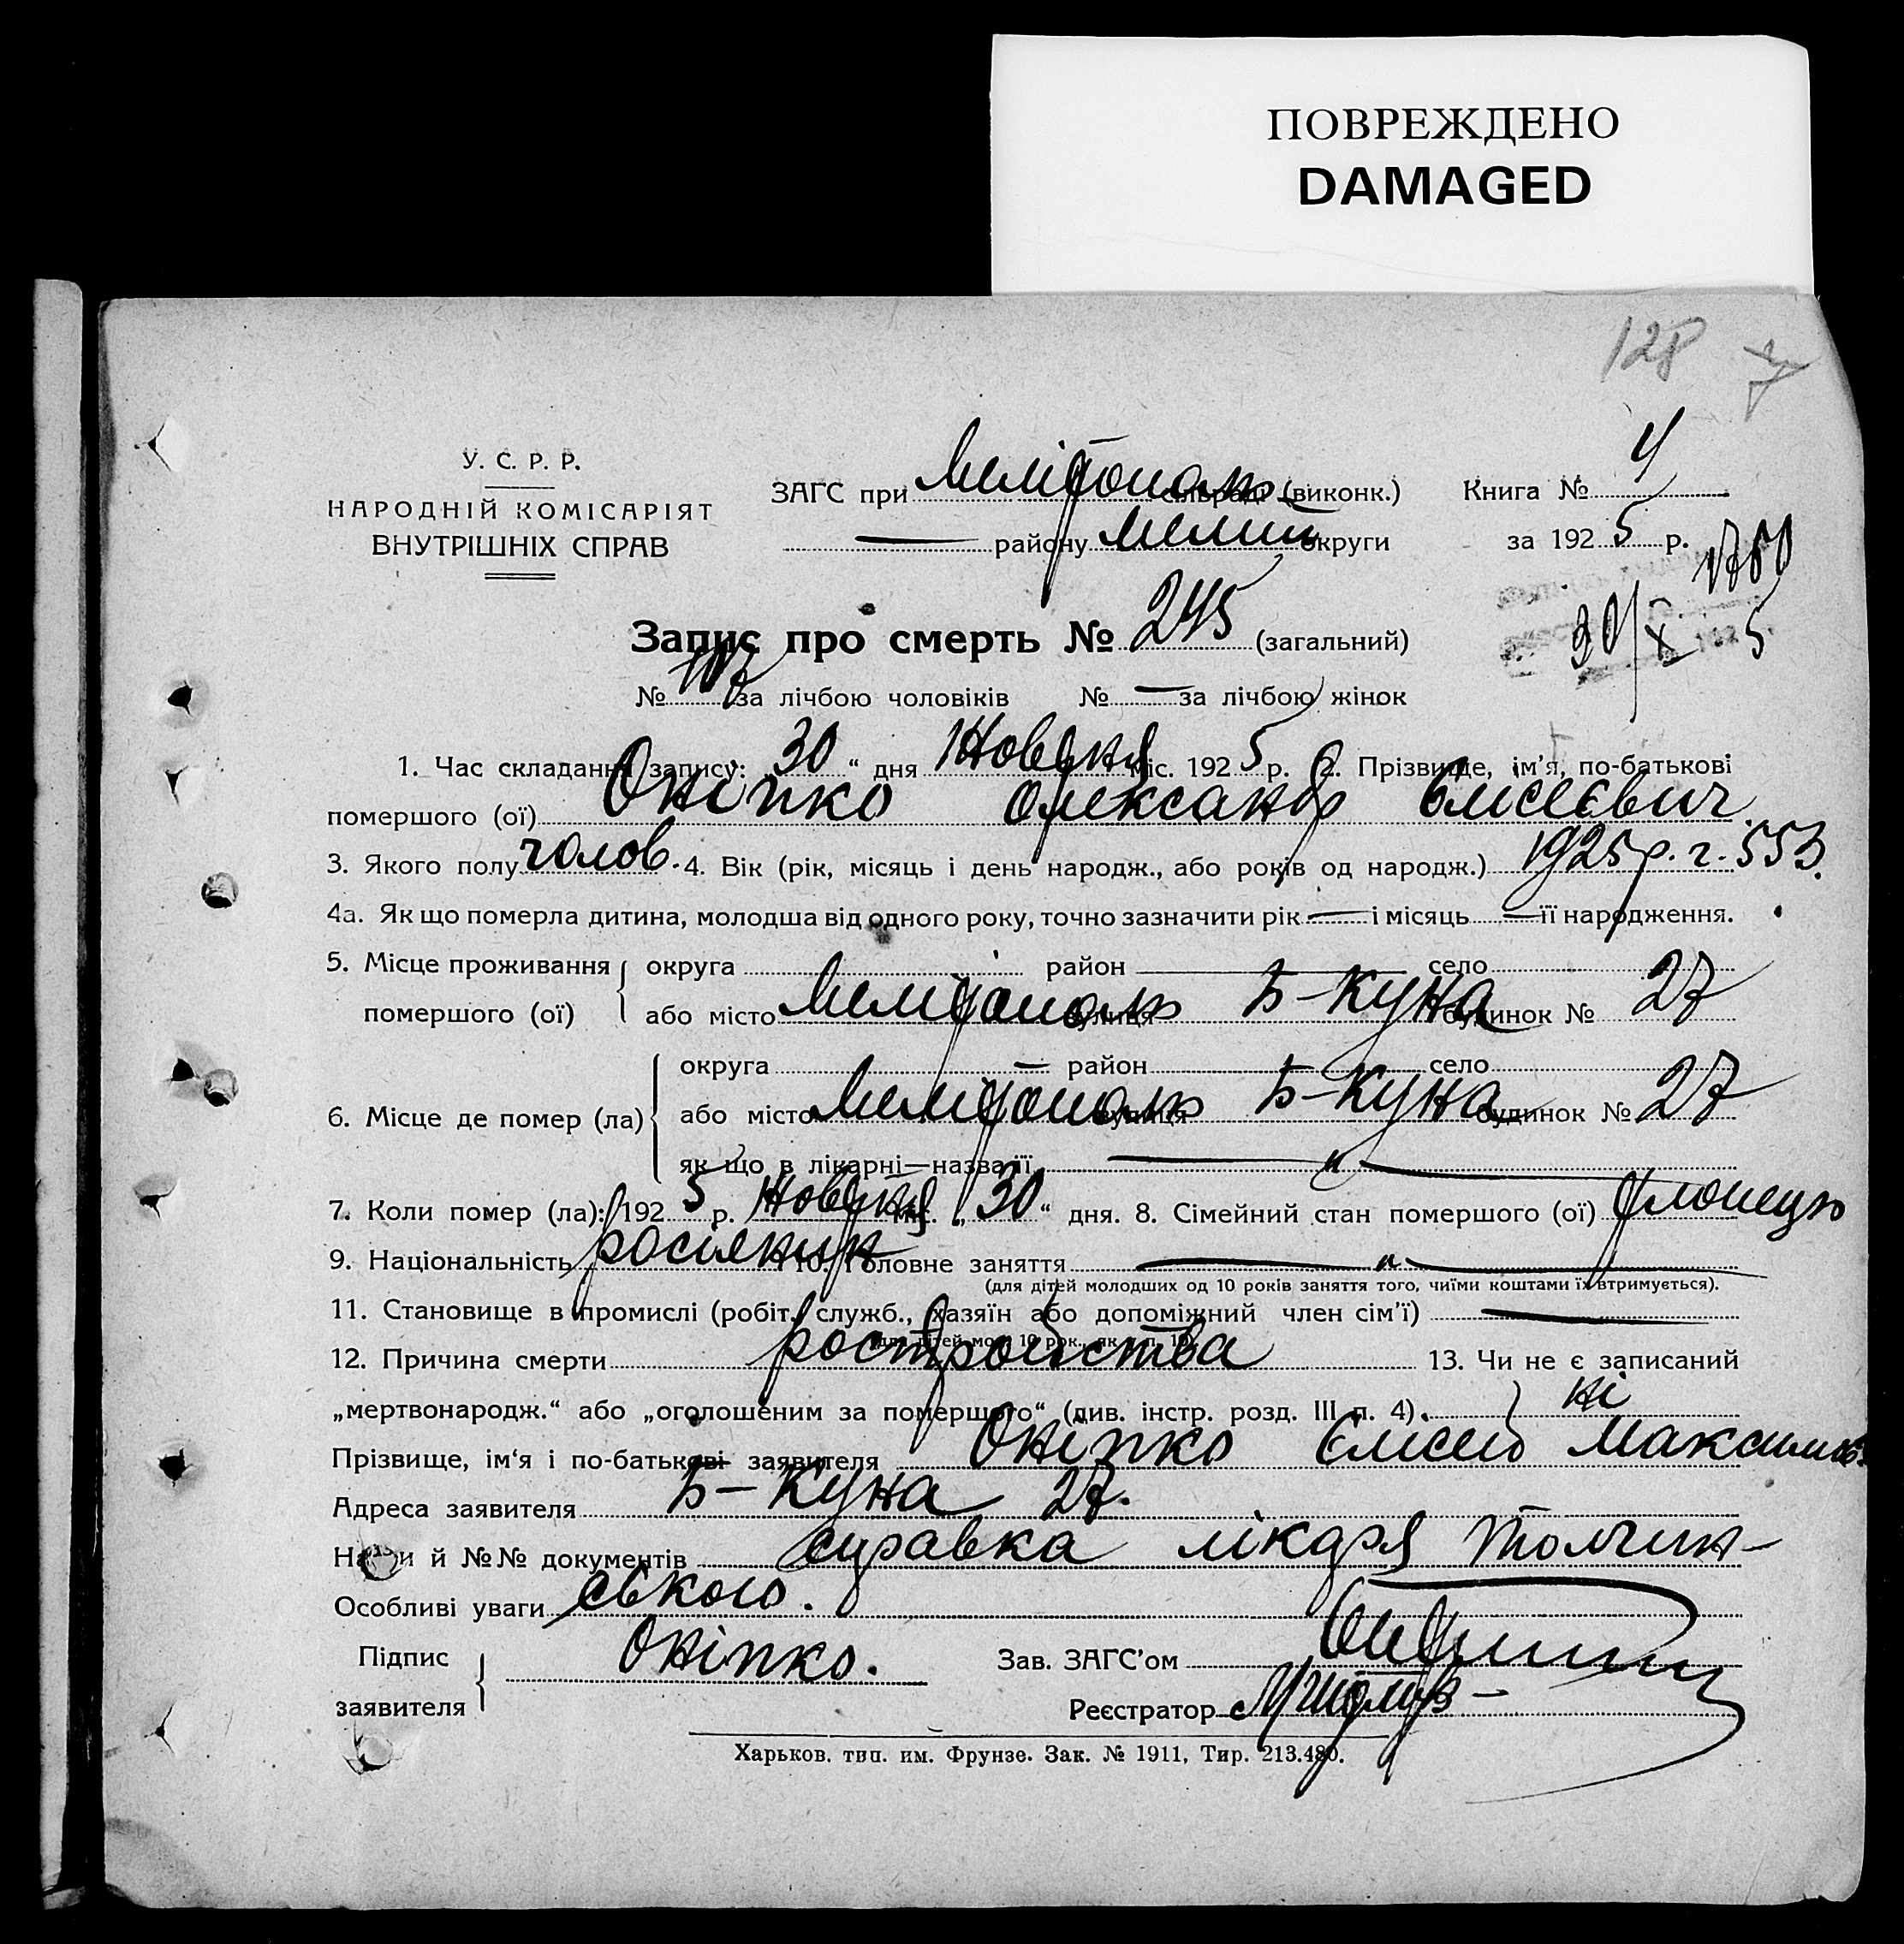 ПОВРЕЖДЕНО
DAMAGED
128
У. С. Р. Р.
НАРОДНІЙ КОМІСАРІЯТ
ВНУТРІШНІХ СПРАВ
ЗАГС при Мелітополь (виконк.)
— району Меліт округи
Книга № 4
за 1925 р.
30/X 5
Запис про смерть № 245 (загальний)
№ за лічбою чоловіків № — за лічбою жінок
1. Час складання запису: 30 “ дня Жовтня міс. 1925 р. 2. Прізвище, ім’я, по-батькові
помершого (ої) Оніпко Олександр Єлисеєвич
3. Якого полу голов. 4. Вік (рік, місяць і день народж., або років од народж.) 1925 р.
4а. Як що померла дитина, молодша від одного року, точно зазначити рік — і місяць — її народження.
5. Місце проживання помершого (ої) округа район — село
або місто Мелітополь вулиця Б-Куна будинок № 27
6. Місце де помер (ла) округа — район село
або місто Мелітополь вулиця Б-Куна будинок № 27
як що в лікарні—назва її — „ —
7. Коли помер (ла): 1925 р. Жовтня міс. „ 30 “ дня. 8. Сімейний стан помершого (ої) хлопець
9. Національність росіянин 10. Головне заняття — „ —
(для дітей молодших од 10 років заняття того, чиїми коштами їх втримується).
11. Становище в промислі (робіт., служб., хазяїн або допоміжний член сім’ї) —
12. Причина смерти росстройства 13. Чи не є записаний
„мертвонародж.“ або „оголошеним за помершого“ (див. інстр. розд. III п. 4). ні
Прізвище, ім‘я і по-батькові заявителя Оніпко Єлисей Максимов.
Адреса заявителя Б-Куна 27.
Назви й №№ документів справка лікаря Толчин-
Особливі уваги ського.
Підпис заявителя Оніпко. Зав. ЗАГС’ом
Реєстратор
Харьков. тип. им. Фрунзе. Зак. № 1911, Тир. 213.480.